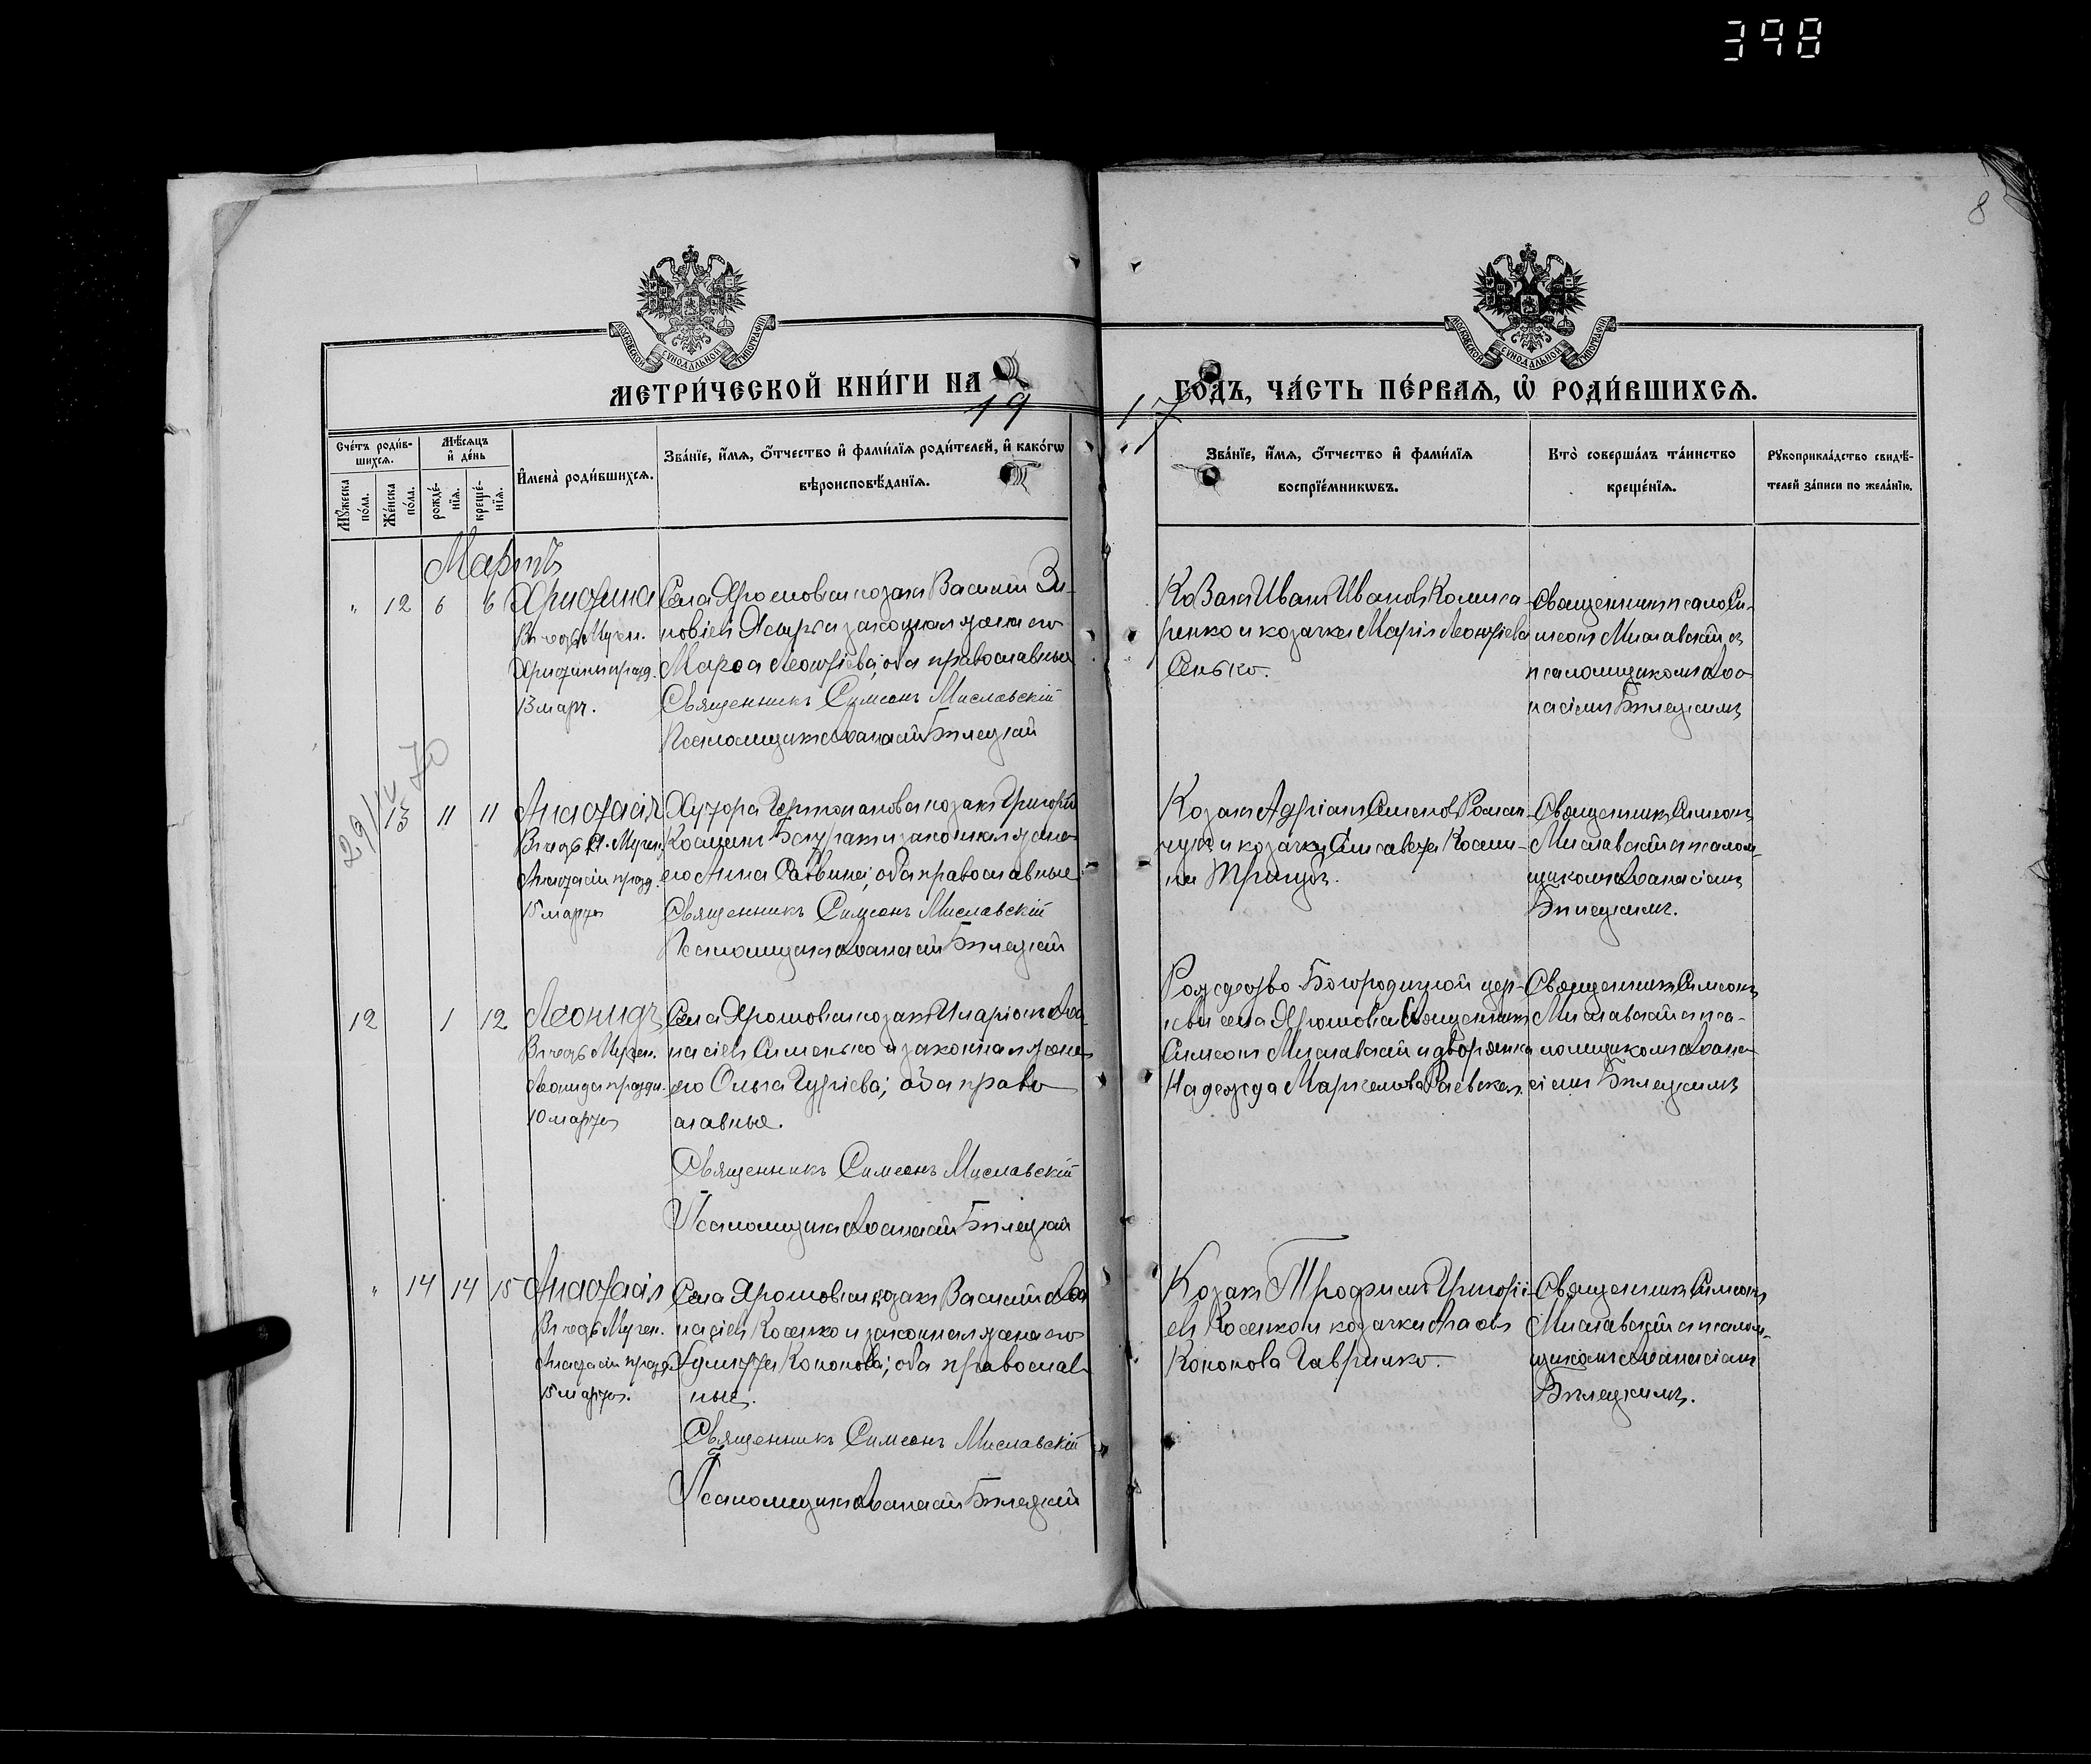 398
8
МОСКОВСКОЙ СѴНОДАЛЬНОЙ ТИПОГРАФІИ
МОСКОВСКОЙ СѴНОДАЛЬНОЙ ТИПОГРАФІИ
МЕТРИ́ЧЕСКОЙ КНИ́ГИ НА 19
17 ГОДЪ, ЧА́СТЬ ПЕ́РВАЯ, Ѡ҆ РОДИ́ВШИХСЯ.
Сче́тъ роди́в-
шихся.
Мꙋ́жеска
по́ла.
Же́нска
по́ла.
Мѣ́сяцъ
и҆ де́нь
рожде́-
нїя.
креще́-
нїя.
И҆мена̀ роди́вшихся.
Зва́нїе, и҆́мя, ѻ҆́тчество и҆ фами́лїя роди́телей, и҆ како́гѡ
вѣроисповѣ́данїя.
Зва́нїе, и҆́мя, ѻ҆́тчество и҆ фами́лїя
воспрїе́мникѡвъ.
Кто̀ соверша́лъ та́инство
креще́нїя.
Рꙋкоприкла́дство свидѣ́-
телей за́писи по жела́нїю.
Мартъ
" 12 6 6
Христина
Въ честь Мучен.
Христины празд.
13 март.
Села Ярошовки козакъ Василій Зи-
новіевъ и законная жена его
Марѳа Леонтіева; оба православные
Священникъ Симеонъ Миславскій
Псаломщикъ Аѳанасій Бѣлецкій
Козакъ Иванъ Ивановъ Комиса-
ренко и козачка Марія Леонтіева
Сенько.
Священникъ Си-
меонъ Миславскій съ
псаломщикомъ Аѳа-
насіемъ Бѣлецкимъ
29/IV 70
13 11 11
Анастасія
Въ честь П. Мучен.
Анастасіи празд.
15 марта
Хутора козакъ Григорій
Косминъ и законная жена
его Анна Саввина; оба православные
Священникъ Симеонъ Миславскій
Псаломщикъ Аѳанасій Бѣлецкій
Козакъ Адріанъ Симеоновъ Роман-
чукъ и козачка Елисавета Косми-
на Тригубъ.
Священникъ Симеонъ
Миславскій съ псалом-
щикомъ Аѳанасіемъ
Бѣлецкимъ.
12 1 12
Леонидъ
Въ честь Мучен.
Леонида праздн.
10 марта
Села Ярошовки козакъ Иларіонъ Аѳа-
насіевъ Сименько и законная жена
его Ольга Гуріева; оба право
славные.
Священникъ Симеонъ Миславскій
Псаломщикъ Аѳанасій Бѣлецкій
Рождество Богородичной цер-
кви села Ярошовки Священникъ
Симеонъ Миславскій и дворянка
Надежда Маркелова Раевская.
Священникъ Симеонъ
Миславскій съ пса-
ломщикомъ Аѳана-
сіемъ Бѣлецкимъ
" 14 14 15
Анастасія
Въ честь Мучен.
Анастасіи празд.
15 марта.
Села Ярошовки козакъ Василій Аѳа
насіевъ Косенко и законная жена его
Кононова; оба православ-
ные.
Священникъ Симеонъ Миславскій
Псаломщикъ Аѳанасій Бѣлецкій
Козакъ Трофимъ Григорі-
евъ Косенко и козачка
Кононова Гавришко.
Священникъ Симеонъ
Миславскій съ псалом-
щикомъ Аѳанасіемъ
Бѣлецкимъ.